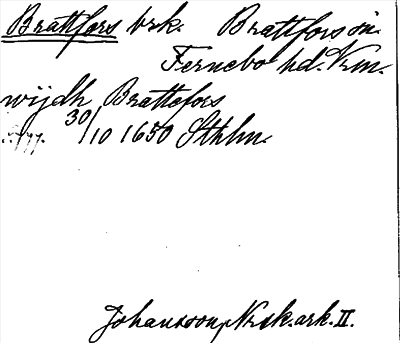 Brattfors brk. Brattfors sn.
Fernebo hd. Vrm.
wijdh Brattefors
30/10 1650 Sthlm.
Johansson, Nrsk. ark. II.